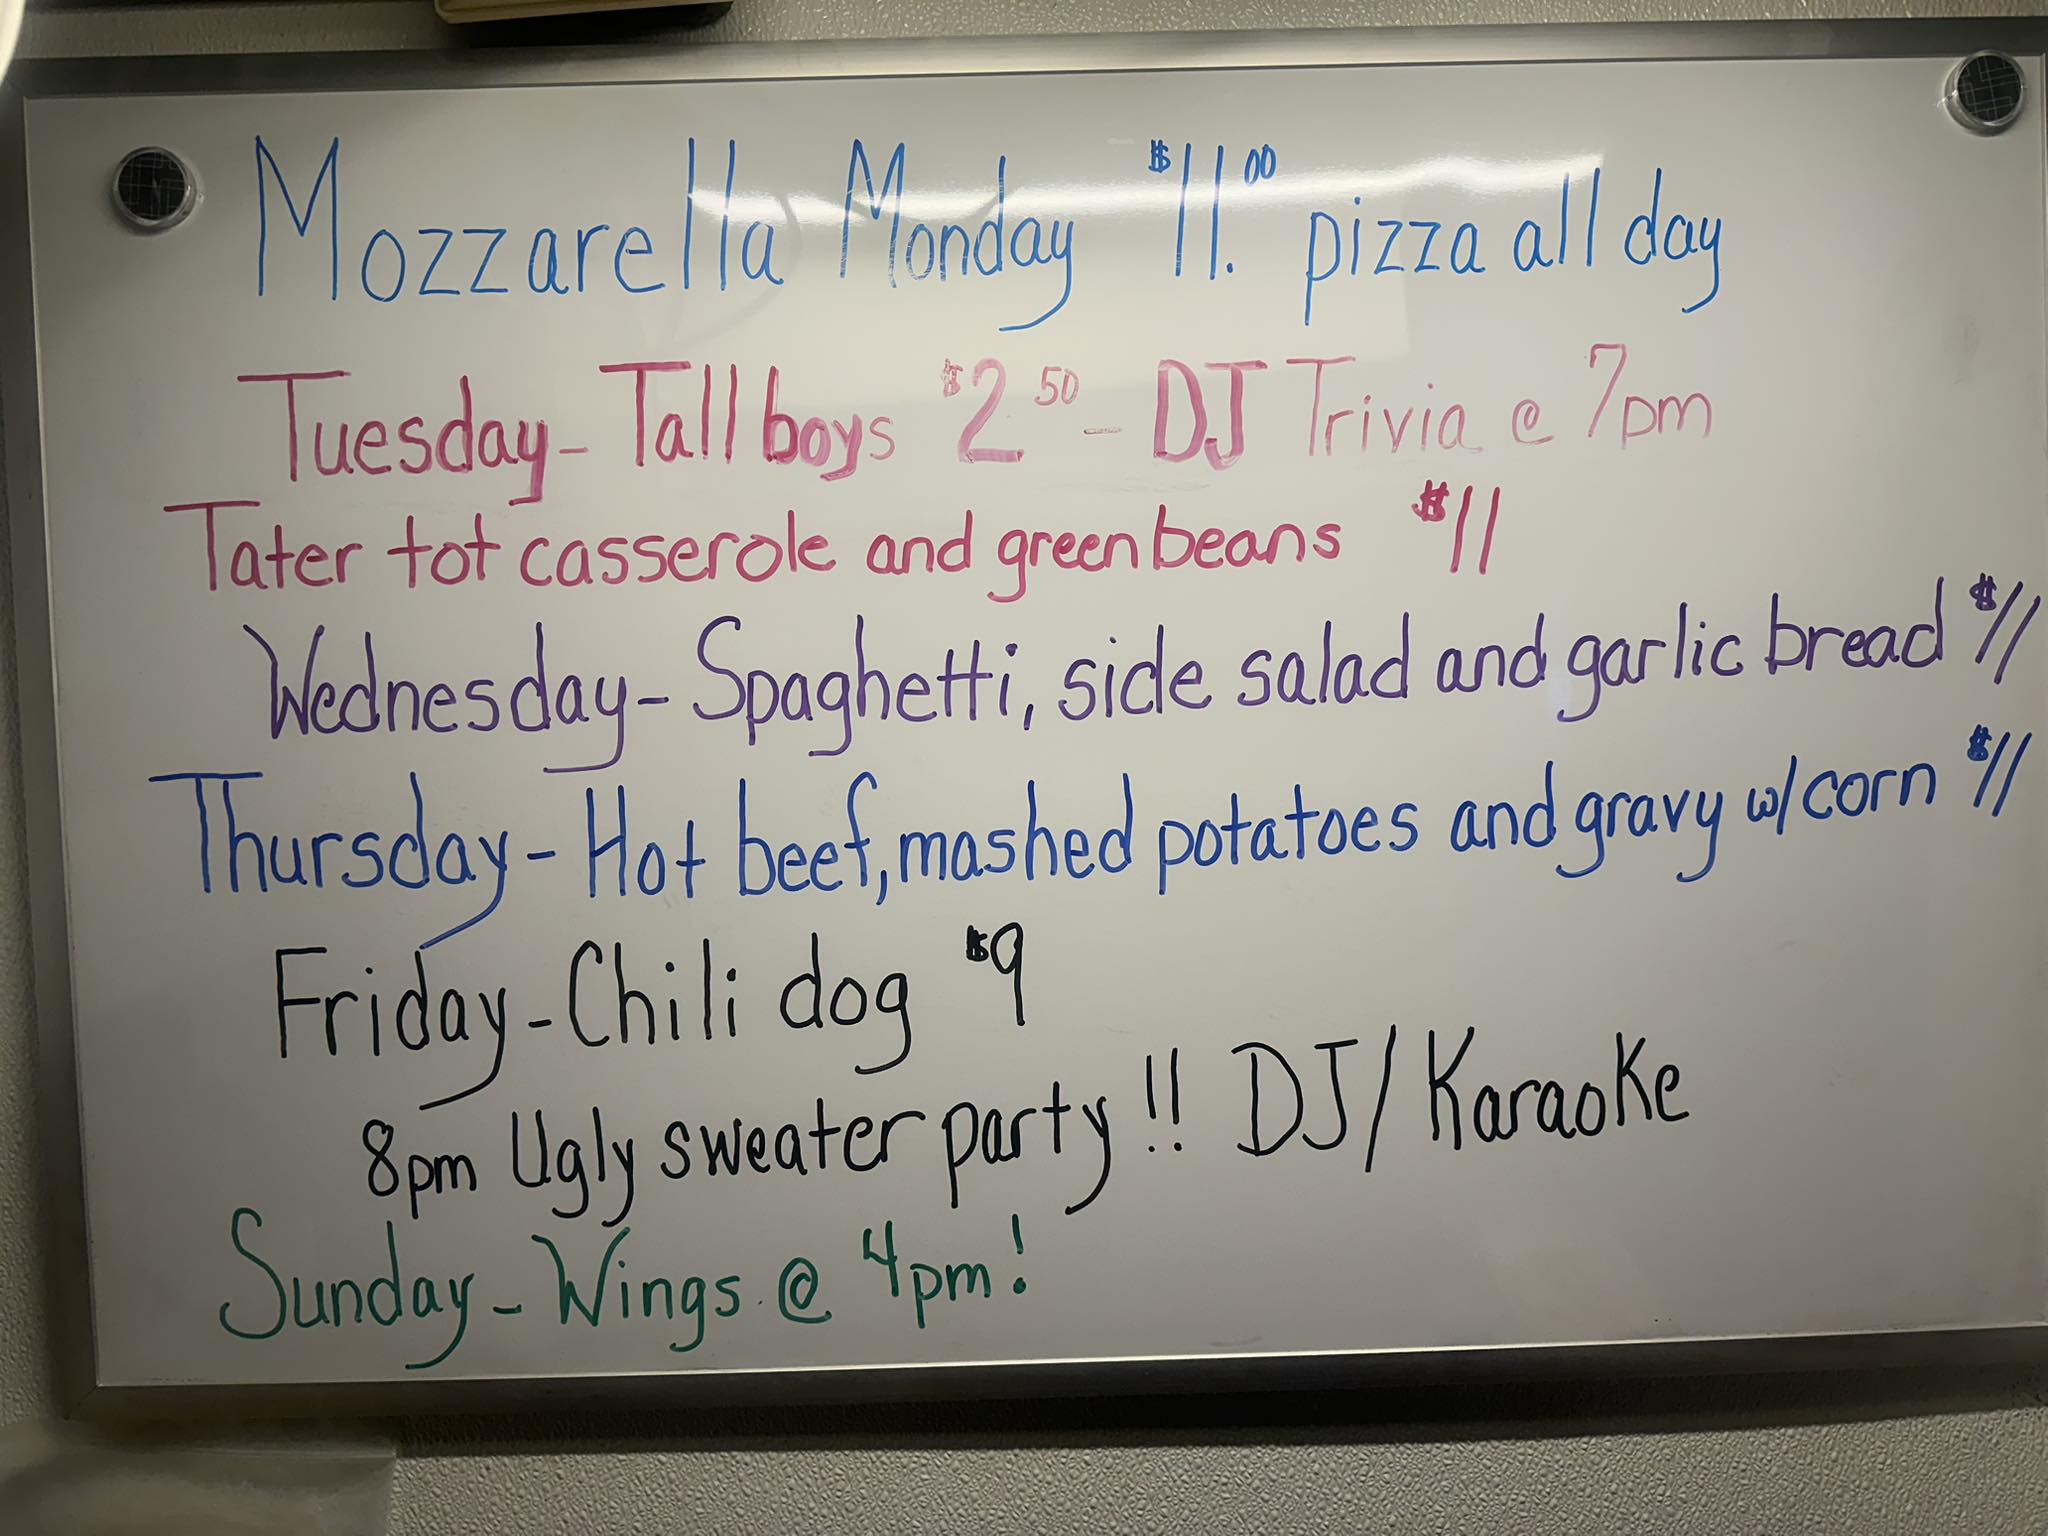 Mozzarella Monday $11.00 pizza all day
Tuesday- Tall boys $2 50 - DJ Trivia @ 7pm
Tater tot casserole and green beans $11
Wednesday- Spaghetti, side salad and garlic bread $11
Thursday- Hot beef, mashed potatoes and gravy w/corn $11
Friday- Chili dog $9
8pm Ugly sweater party!! DJ/Karaoke
Sunday- Wings @ 4pm!